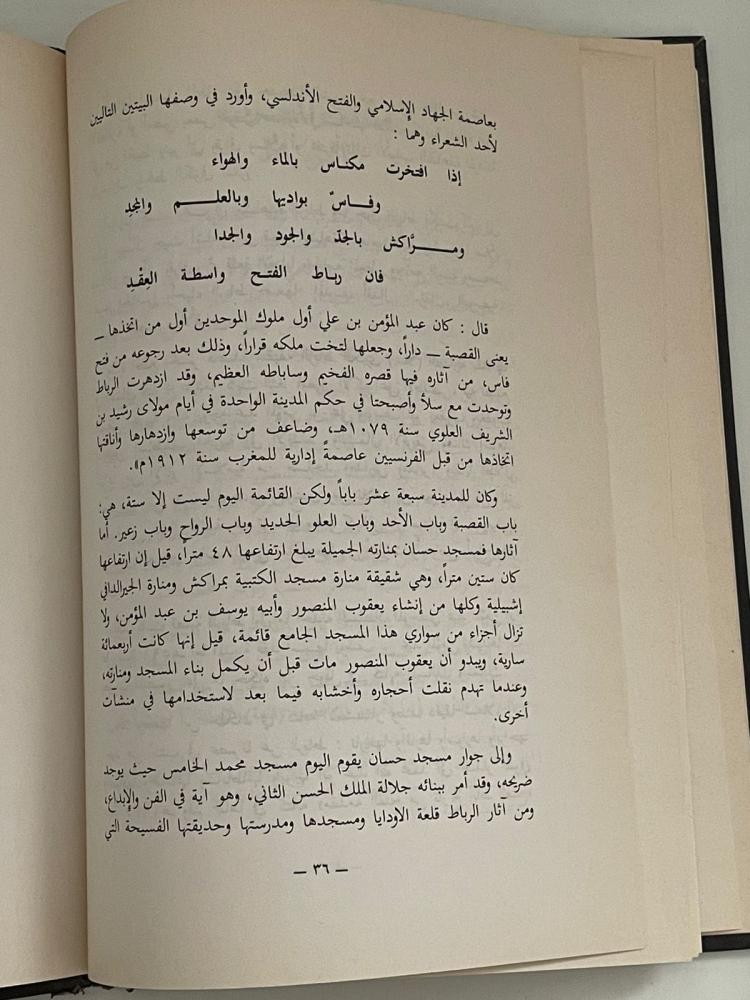 بعاصمة الجهاد الإسلامي والفتح الأندلسي، وأورد في وصفها البيتين التاليين
لأحد الشعراء وهما :
إذا افتخرت مكناس بالماء والهواء
وفـاسٌ بواديها وبالعلـم والمجدِ
ومـرَّاكش بالجدّ والجود والجدا
فان رباط الفتح واسطة العِقْدِ
قال : كان عبد المؤمن بن علي أول ملوك الموحدين أول من اتخذها —
يعنى القصبة — داراً، وجعلها لتخت ملكه قراراً، وذلك بعد رجوعه من فتح
فاس، من آثاره فيها قصره الفخيم وساباطه العظيم، وقد ازدهرت الرباط
وتوحدت مع سلأ وأصبحتا في حكم المدينة الواحدة في أيام مولاى رشيد بن
الشريف العلوي سنة ١٠٧٩هـ، وضاعف من توسعها وازدهارها وأناقتها
اتخاذها من قبل الفرنسيين عاصمةً إدارية للمغرب سنة ١٩١٢م».
وكان للمدينة سبعة عشر باباً ولكن القائمة اليوم ليست إلا ستة، هي:
باب القصبة وباب الأحد وباب العلو الحديد وباب الرواح وباب زعير. أما
آثارها فمسجد حسان بمنارته الجميلة يبلغ ارتفاعها ٤٨ متراً، قيل إن ارتفاعها
كان ستين متراً، وهي شقيقة منارة مسجد الكتبية بمراكش ومنارة الجيرالدافي
إشبيلية وكلها من إنشاء يعقوب المنصور وأبيه يوسف بن عبد المؤمن، ولا
تزال أجزاء من سواري هذا المسجد الجامع قائمة، قيل إنها كانت أربعمائة
سارية، ويبدو أن يعقوب المنصور مات قبل أن يكمل بناء المسجد ومنارته،
وعندما تهدم نقلت أحجاره وأخشابه فيما بعد لاستخدامها في منشآت
أخرى.
وإلى جوار مسجد حسان يقوم اليوم مسجد محمد الخامس حيث يوجد
ضريحه، وقد أمر ببنائه جلالة الملك الحسن الثاني، وهو آية في الفن والإبداع،
ومن آثار الرباط قلعة الاودايا ومسجدها ومدرستها وحديقتها الفسيحة التي
— ٣٦ —